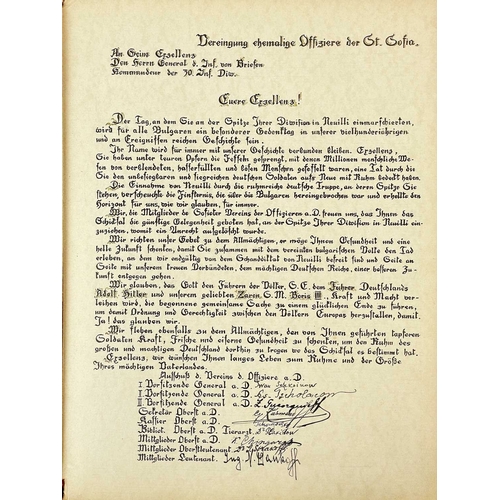 Vereingung ehemalige Offiziere der St. Sofia.
An Seine Exzellenz
Den Herrn General d. Inf. von Briesen
Kommandeur der 30. Inf. Div.
Euere Exzellenz!
Der Tag, an dem Sie an der Spitze Ihrer Diwision in Neuilli einmarschierten,
wird für alle Bulgaren ein besonderer Gedenktag in unserer vielhunderiährigen
und an Ereignissen reichen Geschichte sein.
Ihr Name wird für immer mit unserer Geschichte verbunden bleiben. Exzellenz,
Sie haben unter teuren Opfern die Fesseln gesprengt, mit denen Millionen menschliche We-
sen von verblendeten, hasserfüllten und bösen Menschen gefesselt waren, eine Tat durch die
Sie den unbesiegbaren und siegreichen deutschen Soldaten aufs neue mit Ruhm bedeckt haben.
Die Einnahme von Neuilli durch die ruhmreiche deutsche Truppe, an deren Spitze Sie
stehen, verscheuchte die Finsternis, die über die Bulgaren hereingebrochen war und erhellte den
Horizont für uns, wie wir glauben, für immer.
Wir, die Mitglieder des Sofioter Vereins der Offizieren a.D. freuen uns, das Ihnen das
Schicksal die günstige Gelegenheit geboten hat, an der Spitze Ihrer Diwision in Neuilli ein-
zuziehen, womit ein Unrecht ausgelöscht wurde.
Wir richten unser Gebet zu dem Allmächtigen, er möge Ihnen Gesundheit und eine
helle Zukunft schenken, damit Sie zusammen mit dem vereinten bulgarischen Volke den Tag
erleben, an dem wir endgültig von dem Schanddiktat von Neuilli befreit sind und Seite an
Seite mit unserem treuen Verbündeten, dem mächtigen Deutschen Reiche, einer besseren Zu-
kunft entgegen gehen.
Wir glauben, das Gott den Führern der Völker, S.E. dem Führer Deutschlands
Adolf Hitler und unserem geliebten Zaren S.M. Boris III. Kraft und Macht ver-
leihen wird, die begonnene gemeinsame Sache zu einem glücklichen Ende zu führen,
um damit Ordnung und Gerechtigkeit zwischen den Völkern Europas herzustallen, damit.
Ja! das glauben wir.
Wir flehen ebenfalls zu dem Allmächtigen, den von Ihnen geführten tapferen
Soldaten Kraft, Frische und eiserne Gesundheit zu schenken, um den Ruhm des
großen und mächtigen Deutschland dorthin zu tragen wo das Schicksal es bestimmt hat.
Exzellenz, wir wünschen Ihnen langes Leben zum Ruhme und der Größe
Ihres mächtigen Vaterlandes.
Ausschuß d. Vereins d. Offiziere a.D.
I Vorsitzende General a.D.
I. Vorsitzende General a.D.
II. Vorsitzende General a.D.
Sekretar Oberst a.D.
Kassier Oberst a.D.
Bibliot. Oberst a.D. Tierarzt
Mittglieder Oberst a.D.
Mittglieder Oberstleutenant
Mittglieder Leutenant. Ing.